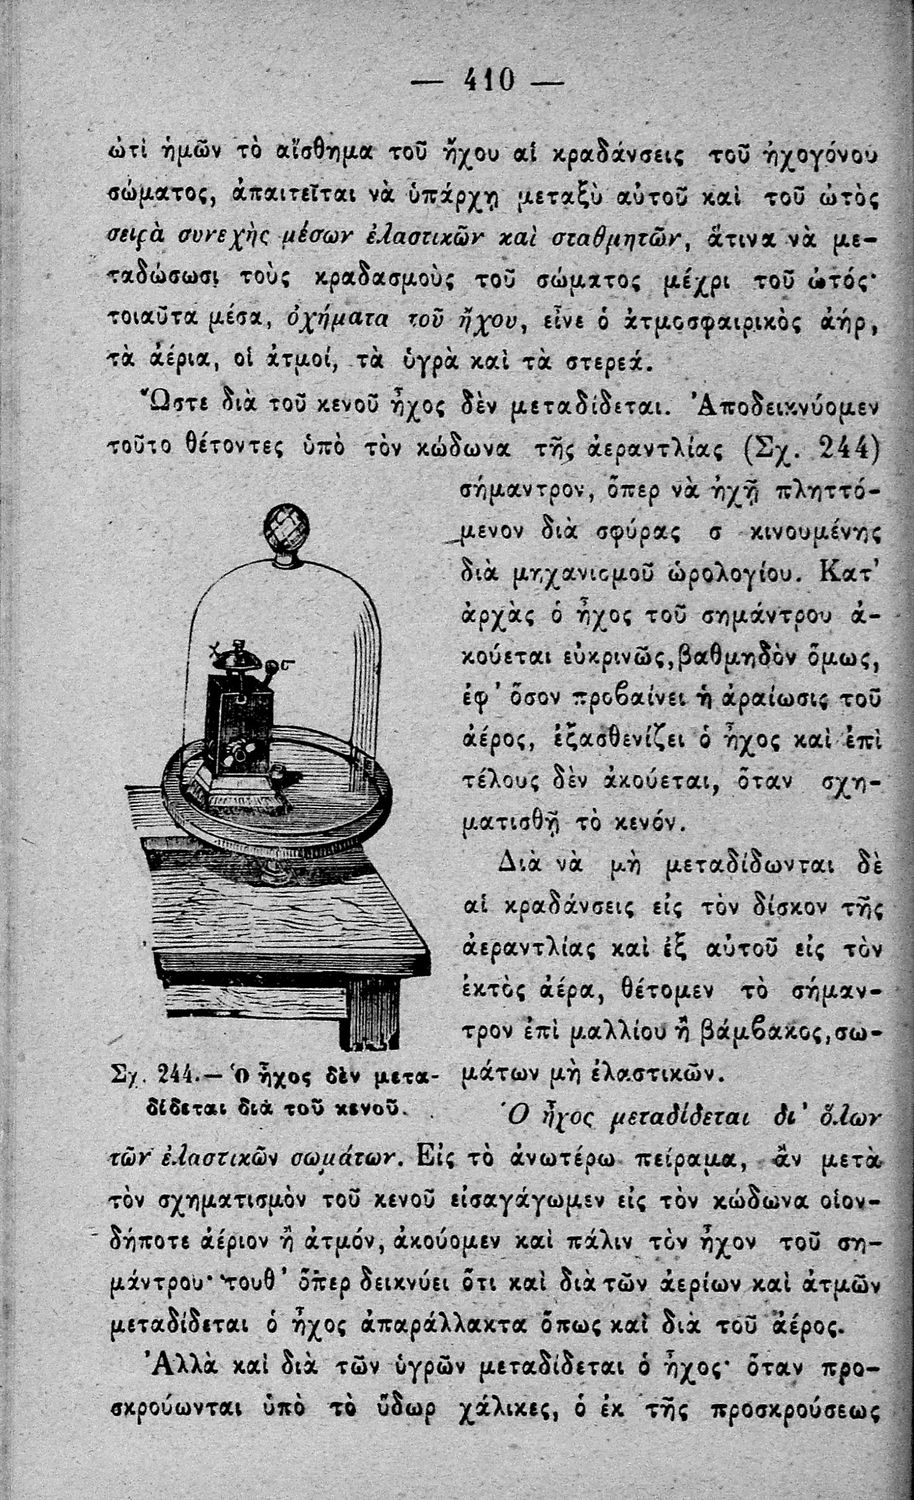 — 410 —
ὠτὶ ἡμῶν τὸ αἴσθημα τοῦ ἤχου αἱ κραδάνσεις τοῦ ἠχογόνου
σώματος, ἀπαιτεῖται νὰ ὑπάρχῃ μεταξὺ αὐτοῦ καὶ τοῦ ὠτὸς
σειρὰ συνεχὴς μέσων ἐλαστικῶν καὶ σταθμητῶν, ἅτινα νὰ με-
ταδώσωσι τοὺς κραδασμοὺς τοῦ σώματος μέχρι τοῦ ὠτός·
τοιαῦτα μέσα, ὀχήματα τοῦ ἤχου, εἶνε ὁ ἀτμοσφαιρικὸς ἀήρ,
τὰ ἀέρια, οἱ ἀτμοί, τὰ ὑγρὰ καὶ τὰ στερεά.
Ὥστε διὰ τοῦ κενοῦ ἦχος δὲν μεταδίδεται. Ἀποδεικνύομεν
τοῦτο θέτοντες ὑπὸ τὸν κώδωνα τῆς ἀεραντλίας (Σχ. 244)
σήμαντρον, ὅπερ νὰ ἠχῇ πληττό-
μενον διὰ σφύρας σ κινουμένης
διὰ μηχανισμοῦ ὡρολογίου. Κατ’
ἀρχὰς ὁ ἦχος τοῦ σημάντρου ἀ-
κούεται εὐκρινῶς, βαθμηδὸν ὅμως,
ἐφ’ ὅσον προβαίνει ἡ ἀραίωσις τοῦ
ἀέρος, ἐξασθενίζει ὁ ἦχος καὶ ἐπὶ
τέλους δὲν ἀκούεται, ὅταν σχη-
ματισθῇ τὸ κενόν.
Διὰ νὰ μὴ μεταδίδωνται δὲ
αἱ κραδάνσεις εἰς τὸν δίσκον τῆς
ἀεραντλίας καὶ ἐξ αὐτοῦ εἰς τὸν
ἐκτὸς ἀέρα, θέτομεν τὸ σήμαν-
τρον ἐπὶ μαλλίου ἢ βάμβακος, σω-
μάτων μὴ ἐλαστικῶν.
Σχ. 244.— Ὁ ἦχος δὲν μετα-
δίδεται διὰ τοῦ κενοῦ.
Ὁ ἦχος μεταδίδεται δι’ ὅλων
τῶν ἐλαστικῶν σωμάτων. Εἰς τὸ ἀνωτέρω πείραμα, ἂν μετὰ
τὸν σχηματισμὸν τοῦ κενοῦ εἰσαγάγωμεν εἰς τὸν κώδωνα οἱον-
δήποτε ἀέριον ἢ ἀτμόν, ἀκούομεν καὶ πάλιν τὸν ἦχον τοῦ ση-
μάντρου· τουθ’ ὅπερ δεικνύει ὅτι καὶ διὰ τῶν ἀερίων καὶ ἀτμῶν
μεταδίδεται ὁ ἦχος ἀπαράλλακτα ὅπως καὶ διὰ τοῦ ἀέρος.
Ἀλλὰ καὶ διὰ τῶν ὑγρῶν μεταδίδεται ὁ ἦχος· ὅταν προ-
σκρούωνται ὑπὸ τὸ ὕδωρ χάλικες, ὁ ἐκ τῆς προσκρούσεως